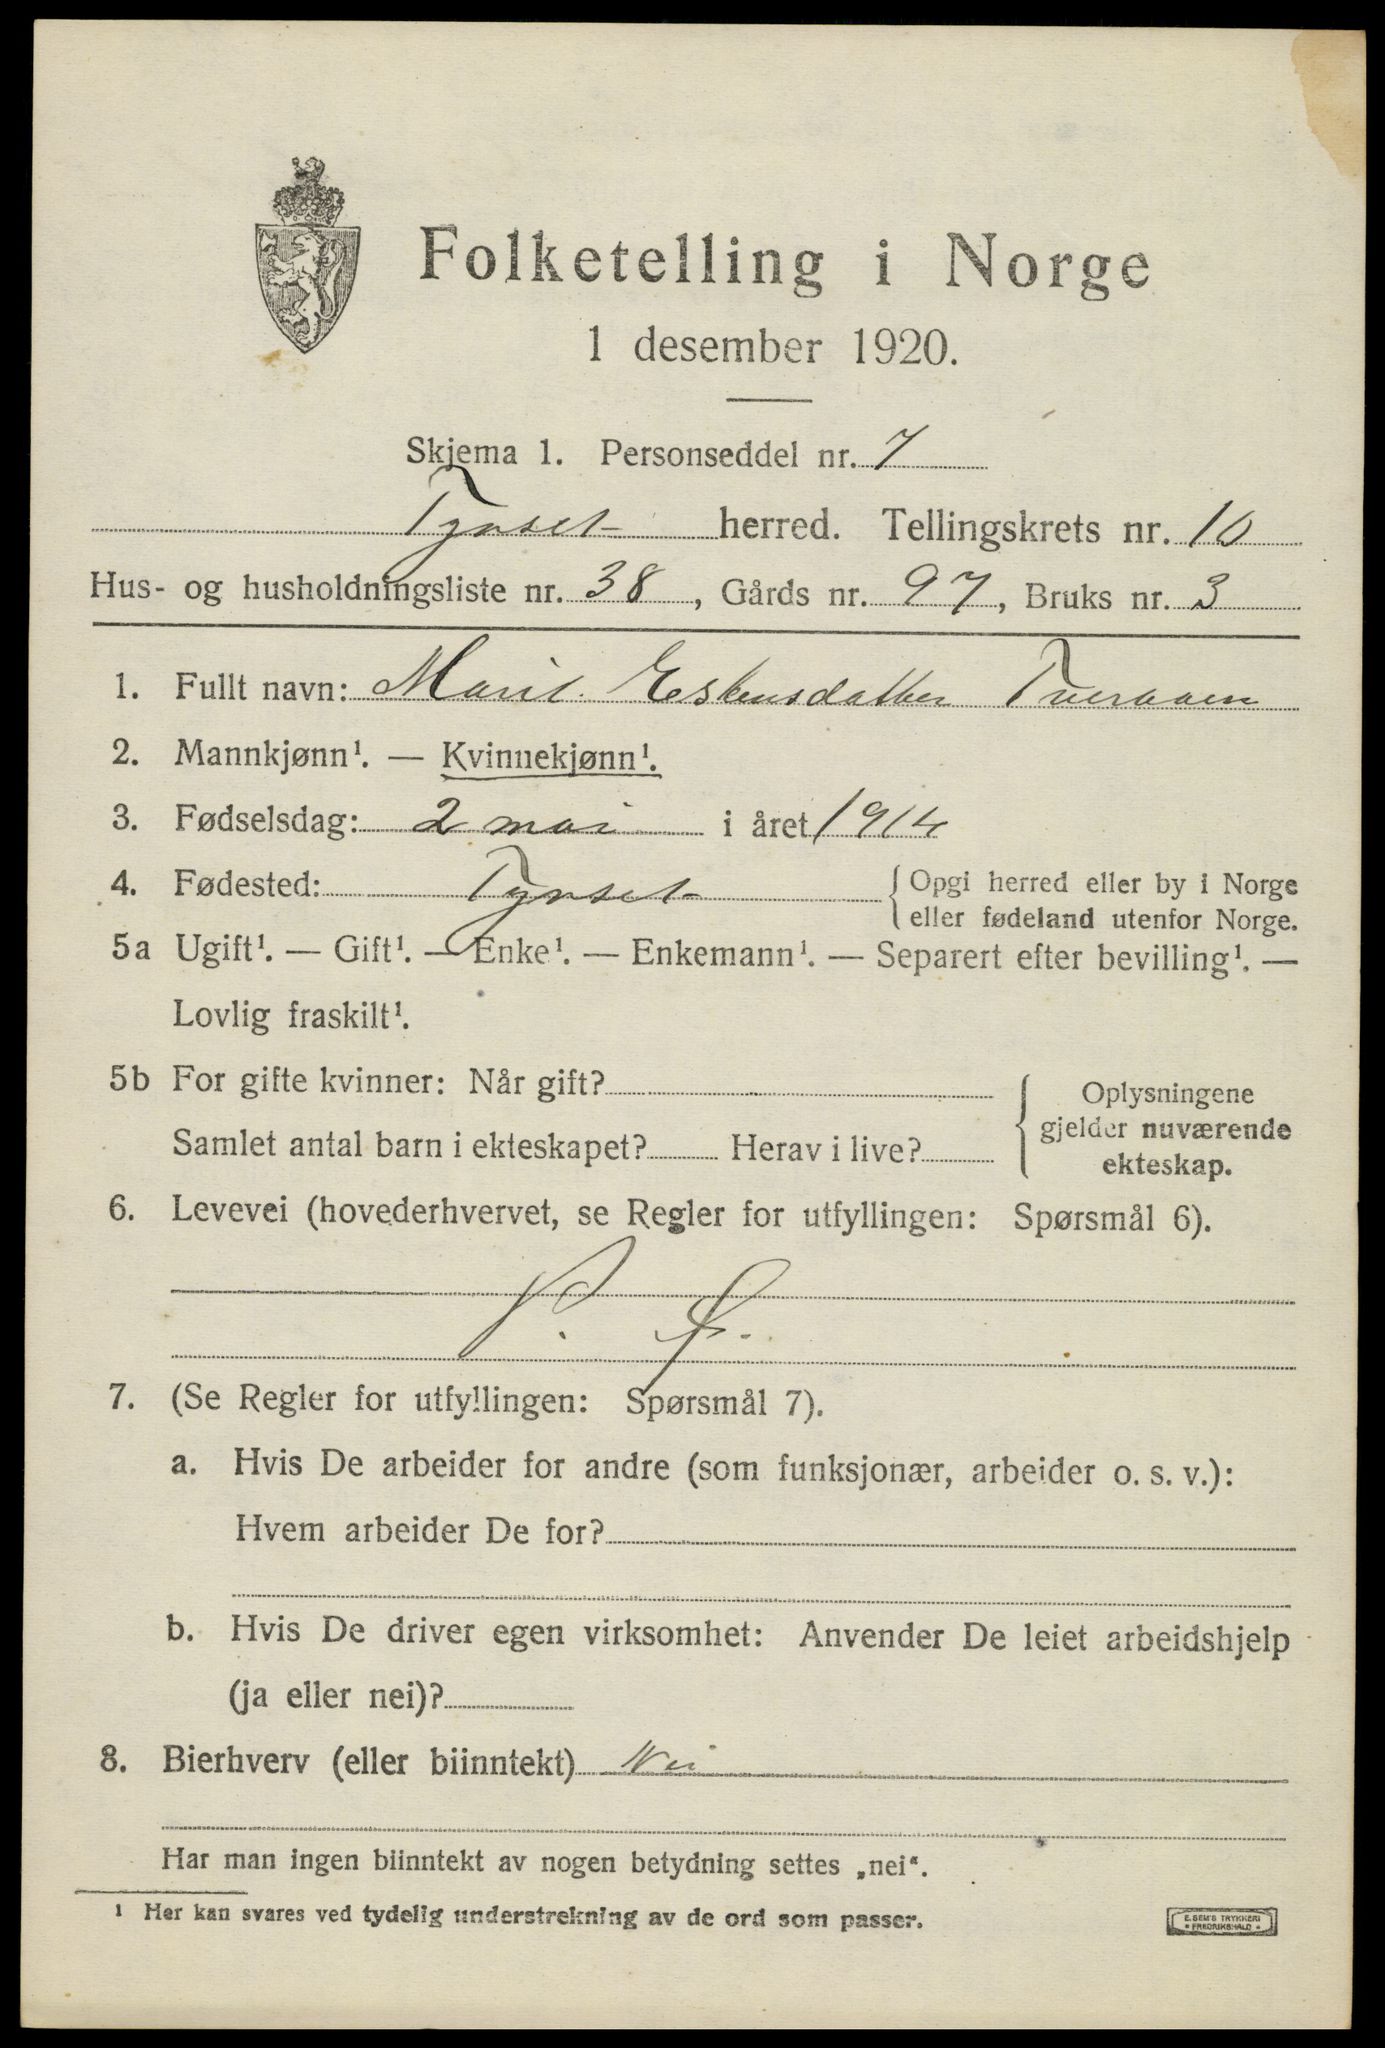 Folketelling i Norge
1 desember 1920.
Skjema 1. Personseddel nr. 7
Tynset herred. Tellingskrets nr. 10
Hus- og husholdningsliste nr. 38, Gårds nr. 97, Bruks nr. 3
1. Fullt navn: Marit Estensdatter Tveraaen
2. Mannkjønn¹. — Kvinnekjønn¹.
3. Fødselsdag: 2 mai i året 1914
4. Fødested: Tynset {Opgi herred eller by i Norge
eller fødeland utenfor Norge.
5a Ugift¹. — Gift¹. — Enke¹. — Enkemann¹. — Separert efter bevilling¹. —
Lovlig fraskilt¹.
5b For gifte kvinner: Når gift?
Samlet antal barn i ekteskapet? Herav i live?
Oplysningene
gjelder nuværende
ekteskap.
6. Levevei (hovederhvervet, se Regler for utfyllingen: Spørsmål 6).
7. (Se Regler for utfyllingen: Spørsmål 7).
a. Hvis De arbeider for andre (som funksjonær, arbeider o. s. v.):
Hvem arbeider De for?
b. Hvis De driver egen virksomhet: Anvender De leiet arbeidshjelp
(ja eller nei)?
8. Bierhverv (eller biinntekt) Nei
Har man ingen biinntekt av nogen betydning settes „nei“.
¹ Her kan svares ved tydelig understrekning av de ord som passer.
E. SEM'S TRYKKERI
• FREDRIKSHALD •